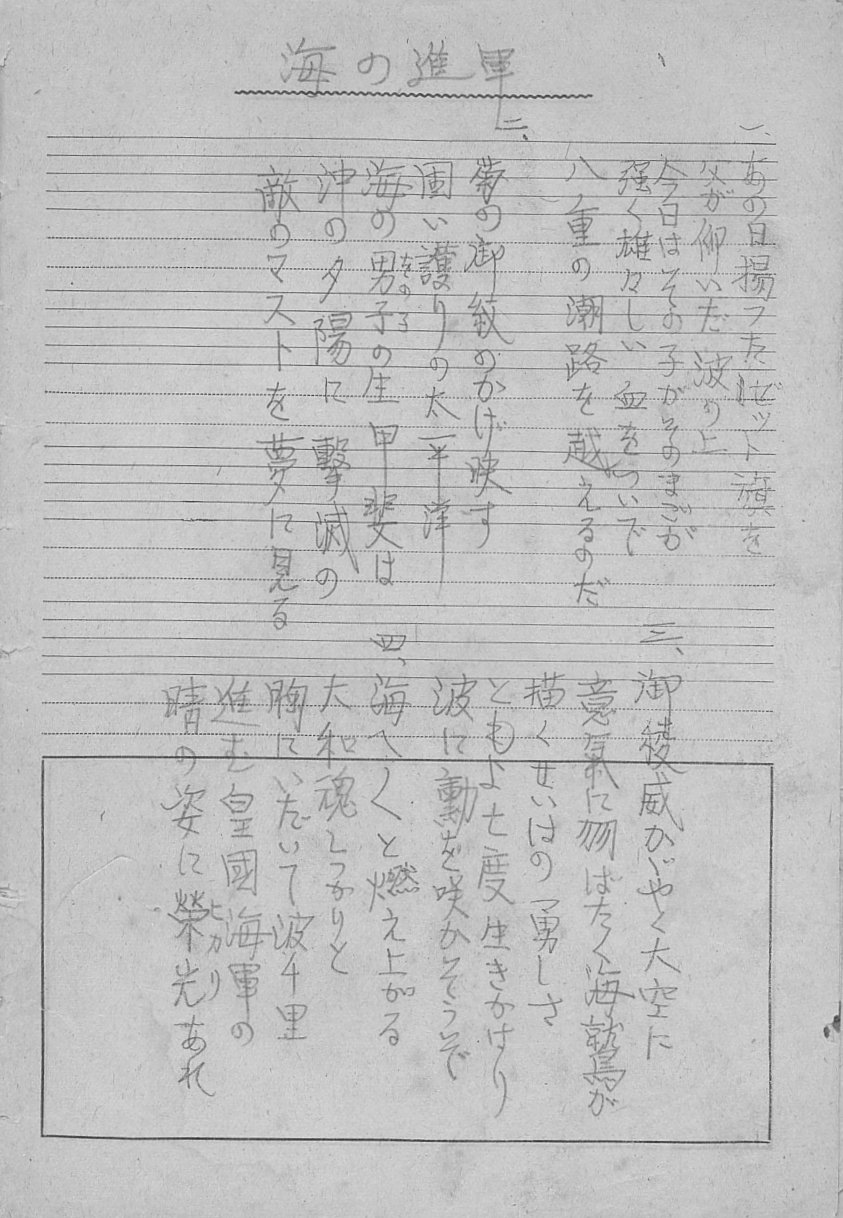 海の進軍
一、あの日揚つたゼット旗を
父が仰いだ波の上
今日はその子がそのまごが
强く雄々しい血をついで
八重の潮路を越えるのだ
二、
菊の御紋のかげ映す
固い護りの太平洋
海の男子の生甲斐は
をのこ
沖の夕陽に撃滅の
敵のマストを夢に見る
三、御稜威かゞやく大空に
意氣に羽ばたく海鷲が
描くせいはの勇しさ
ともよ七度生きかはり
波に勲を咲かそうぞ
四、海へ〱と燃え上がる
大和魂しつかりと
胸にいだいて波千里
進む皇國海軍の
晴の姿に榮光あれ
ヒカリ